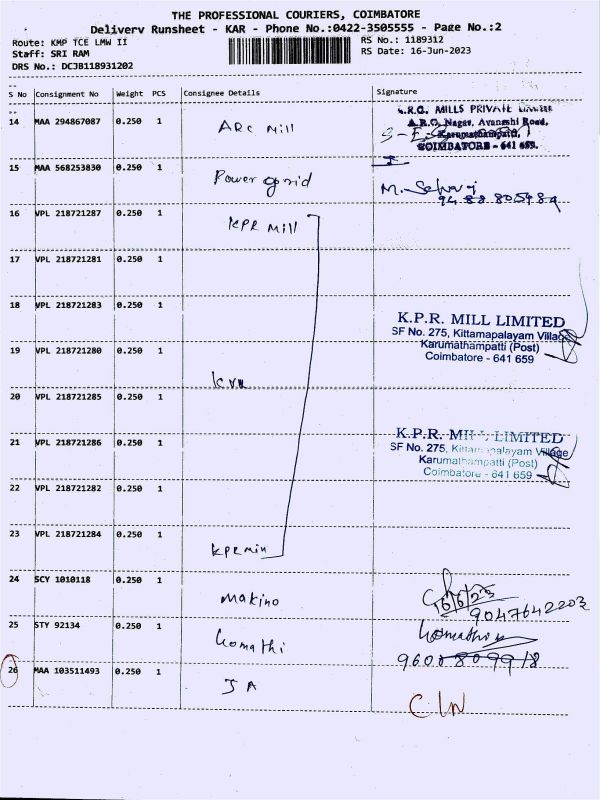 THE PROFESSIONAL COURIERS, COIMBATORE
Delivery Runsheet - KAR - Phone No.:0422-3505555 - Page No.:2
Route: KMP TCE LMW II
RS No.: 1189312
Staff: SRI RAM
RS Date: 16-Jun-2023
DRS No.: DCJB118931202
S No Consignment No Weight PCS Consignee Details Signature
14 MAA 294867087 0.250 1 ARC Mill
MILLS PRIVATE
A.R.C. Nagar, Avanashi Road,
Karumathampatti,
COIMBATORE - 641 659.
15 MAA 568253830 0.250 1 Power grid M. Selvaraj
16 VPL 218721287 0.250 1 KPR Mill
17 VPL 218721281 0.250 1
18 VPL 218721283 0.250 1
K.P.R. MILL LIMITED
SF No. 275, Kittamapalayam Village
Karumathampatti (Post)
Coimbatore - 641 659
19 VPL 218721280 0.250 1
20 VPL 218721285 0.250 1
21 VPL 218721286 0.250 1
K.P.R. MILL LIMITED
SF No. 275, Kittamapalayam Village
Karumathampatti (Post)
Coimbatore - 641 659
22 VPL 218721282 0.250 1
23 VPL 218721284 0.250 1 KPR Min
24 SCY 1010118 0.250 1 Makino
16/6/23
9047642203
25 STY 92134 0.250 1 Gomathi Gomathi
9600809918
26 MAA 103511493 0.250 1 JA CIN